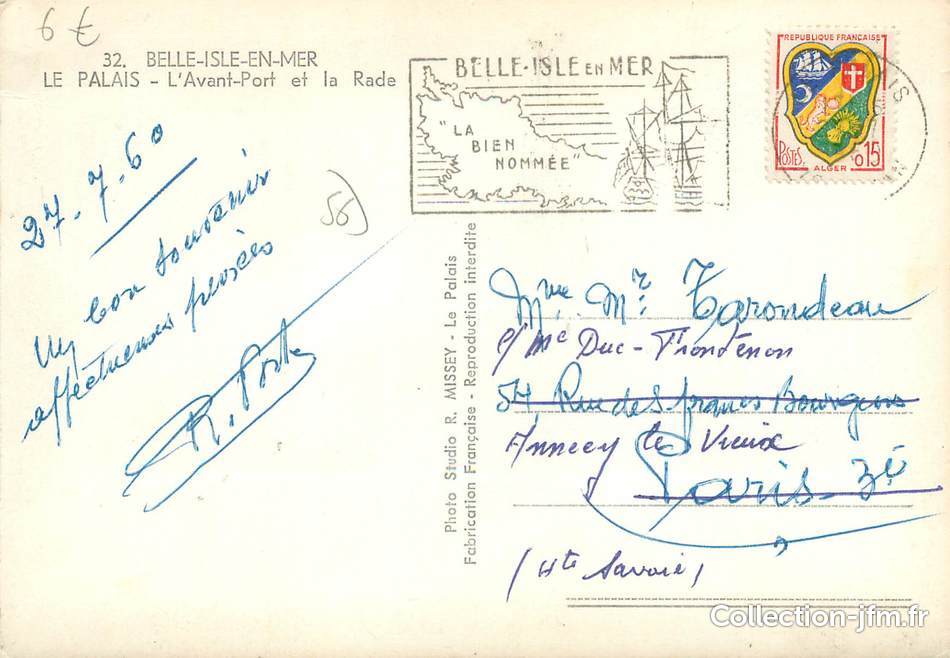 6 €
32. BELLE-ISLE-EN-MER
LE PALAIS - L'Avant-Port et la Rade
BELLE-ISLE EN MER
"LA
BIEN
NOMMÉE"
REPUBLIQUE FRANÇAISE
POSTES
ALGER
0,15
27-7-60
56
Un bon souvenir
affectueuses pensées
R. Porte
Photo Studio R. MISSEY - Le Palais
Fabrication Française - Reproduction interdite
Mme Mr. Tarondeau
c/ Me Duc-Frontenon
54, Rue des francs Bourgeois
Annecy le Vieux
Paris 3è
(Hte Savoie)
Collection-jfm.fr